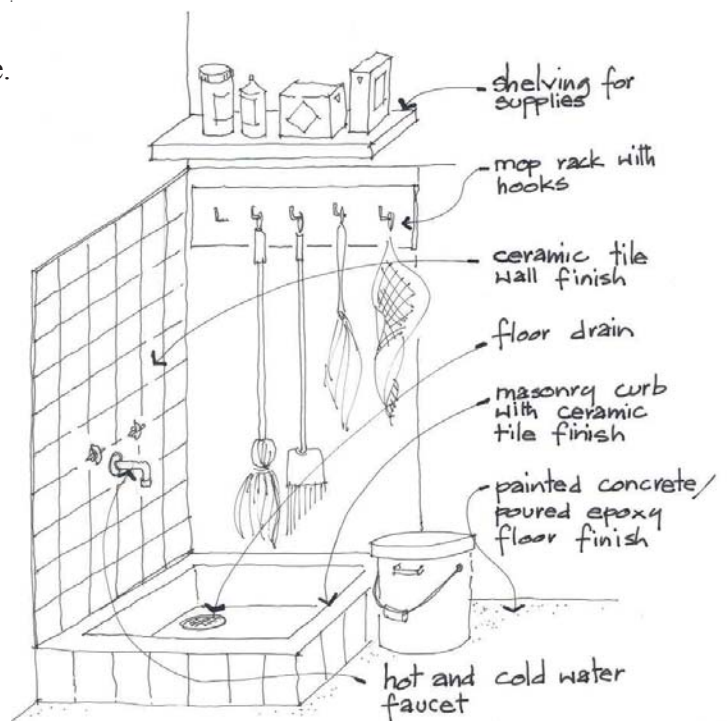 e.
shelving for
supplies
mop rack with
hooks
ceramic tile
wall finish
floor drain
masonry curb
with ceramic
tile finish
painted concrete/
poured epoxy
floor finish
hot and cold water
faucet